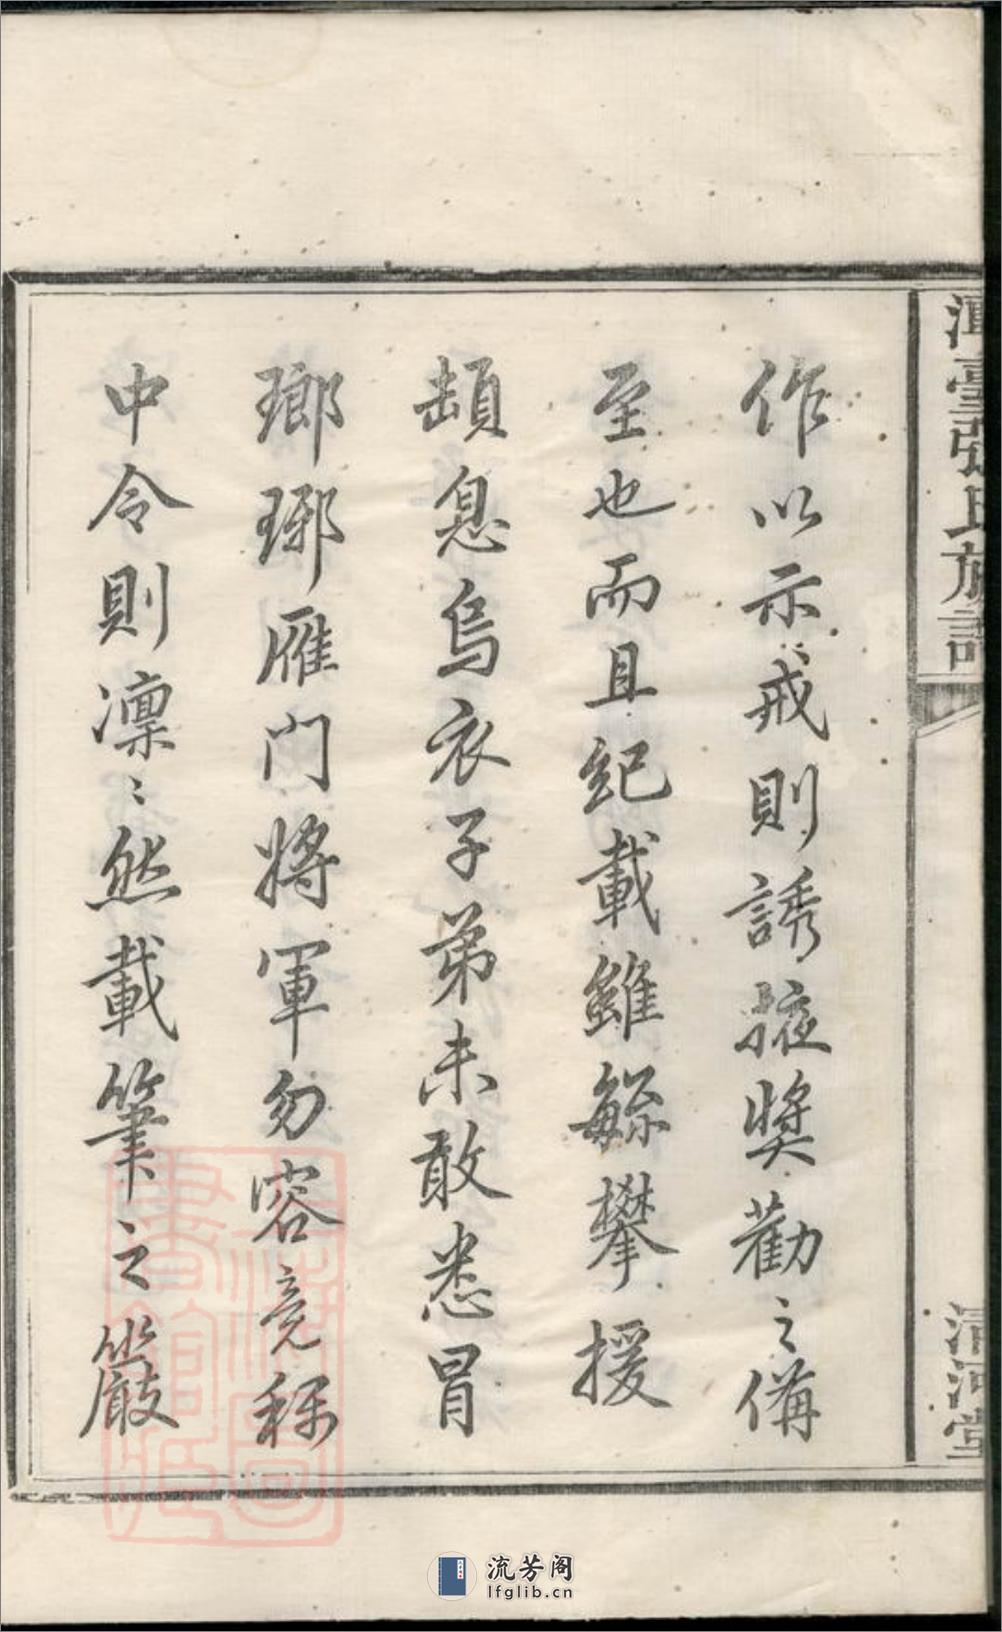 臺張氏族譜
清河堂
作以示戒則誘掖獎勸之備
至也而且紀載雖繇攀援
頡息烏衣子弟未敢悉冒
瑯琊雁門將軍勿容竞称
中令則凜〻然載筆之嚴
書圖
館
流芳阁
lfglib.cn